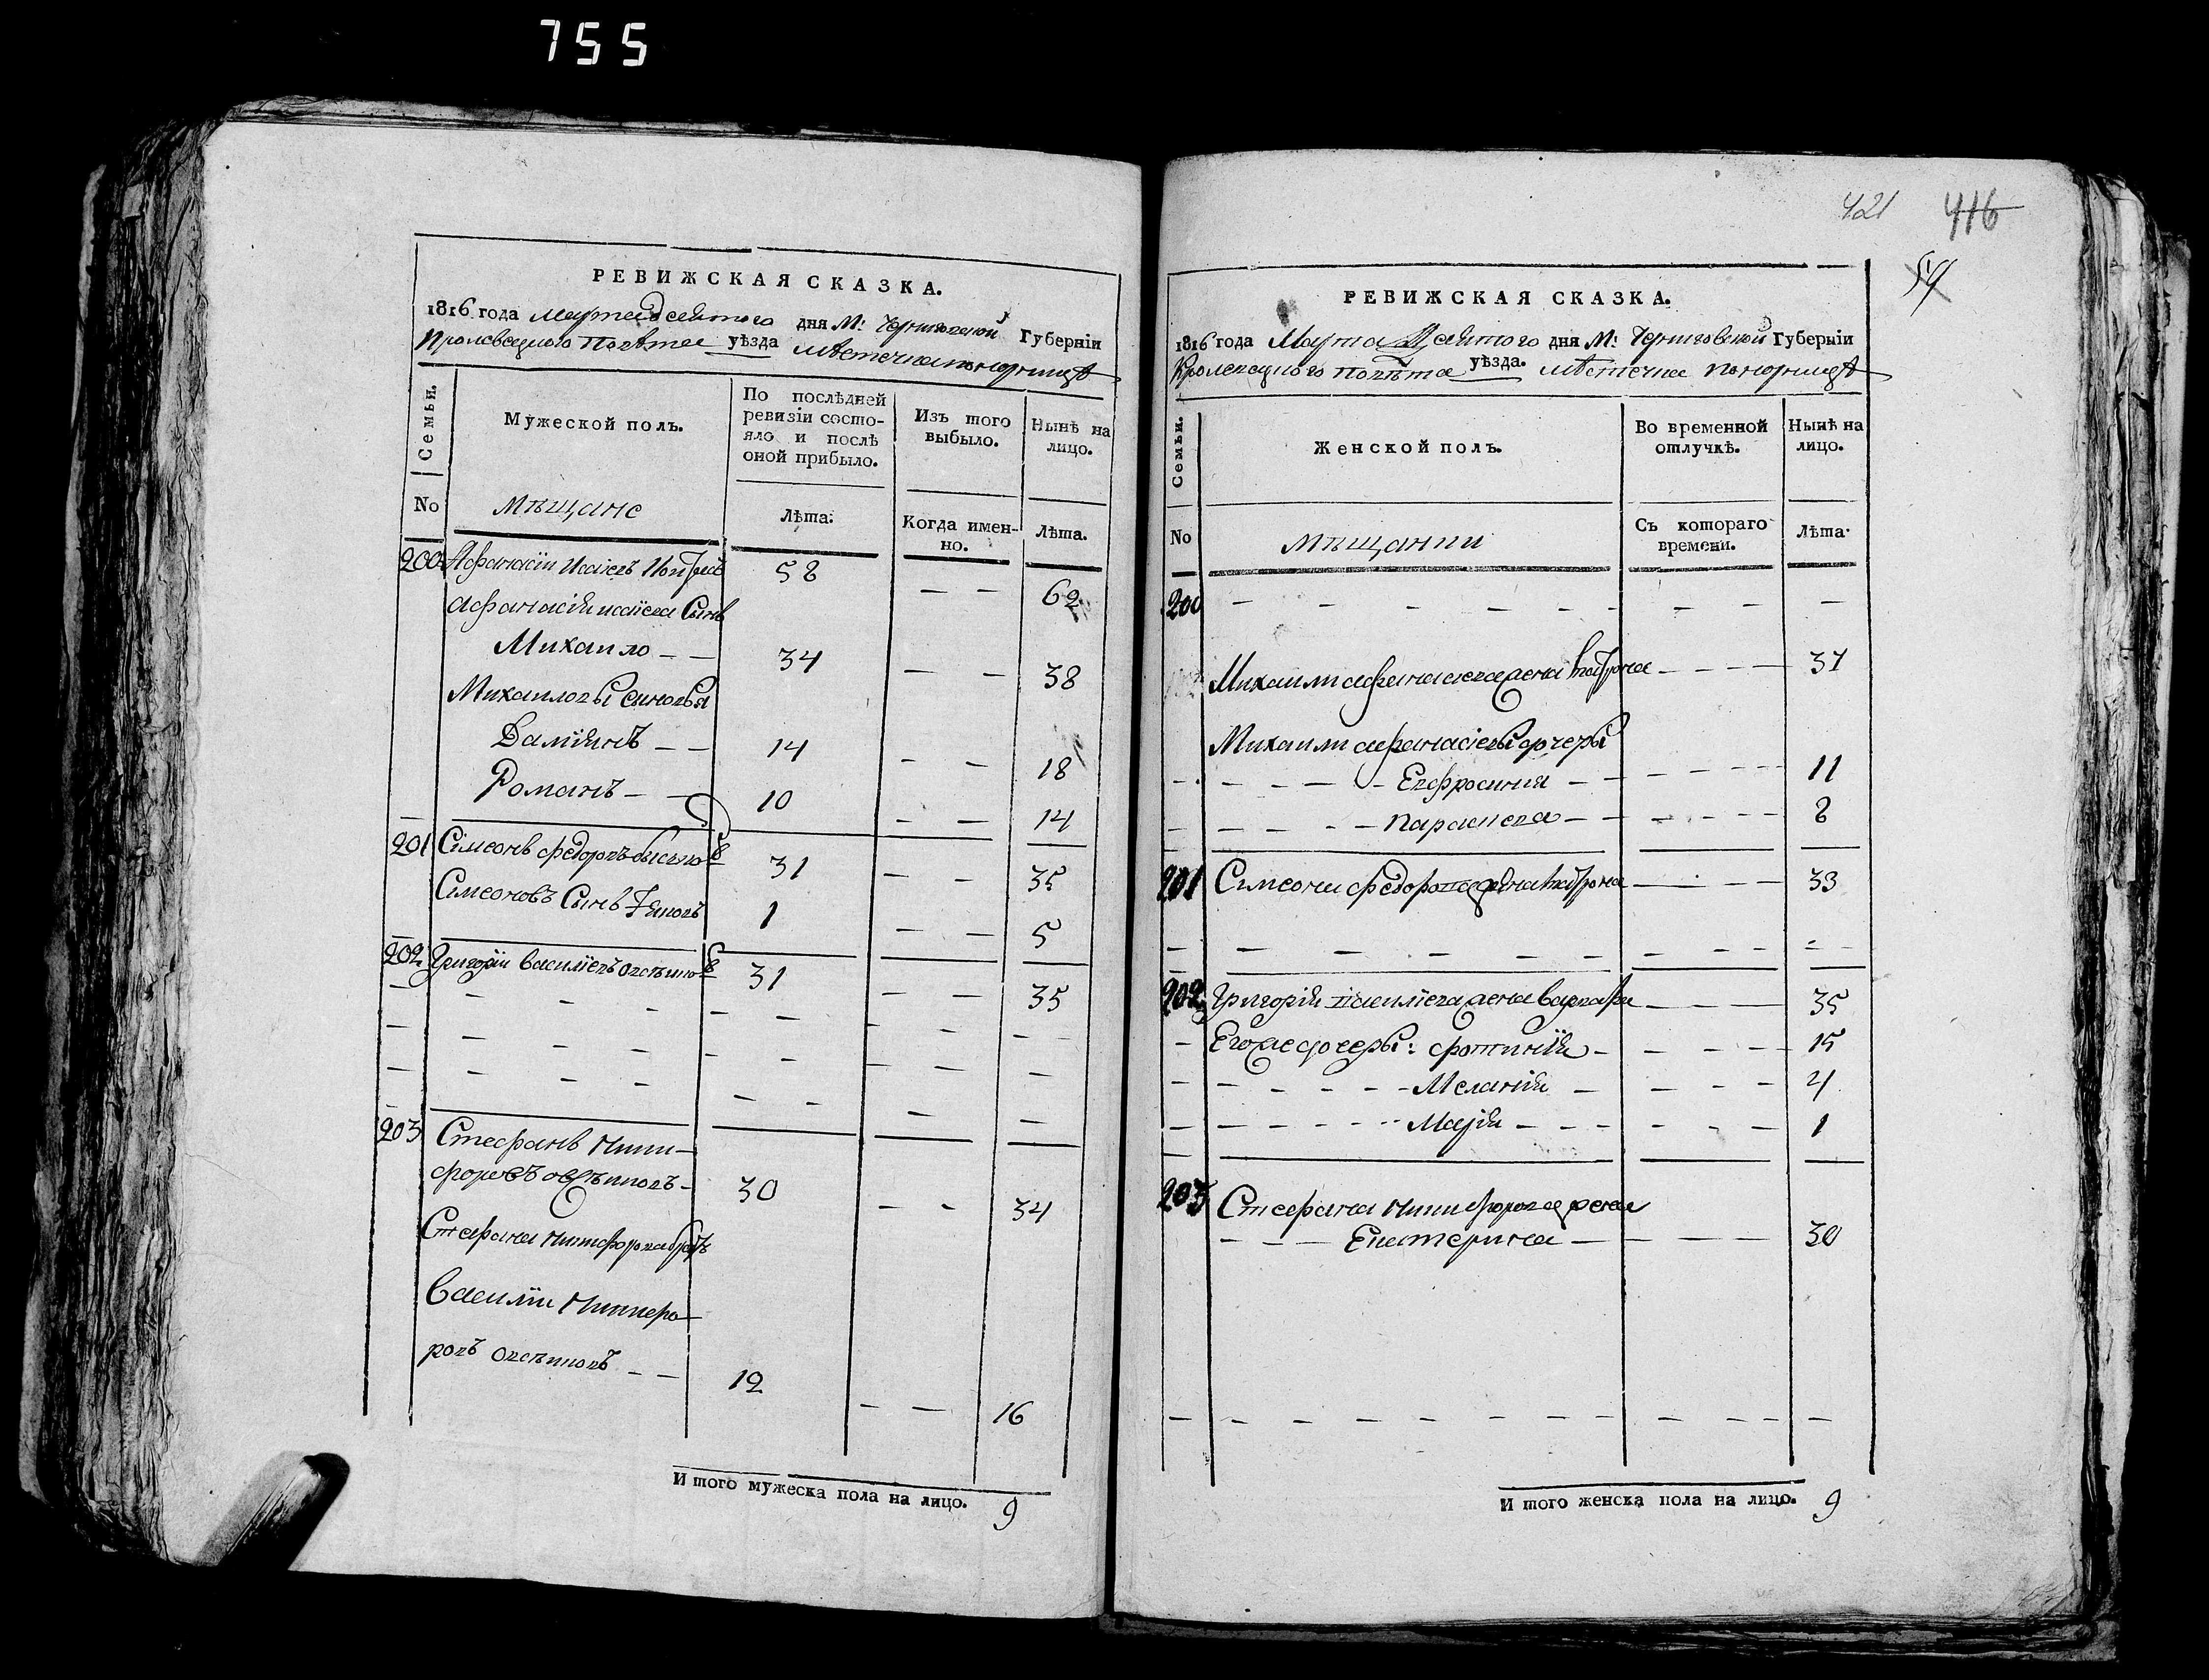 755
РЕВИЖСКАЯ СКАЗКА.
1816 года Марта Десятого дня М: Черниговской Губерніи
Кролевецкого Повѣта уѣзда мѣстечка Понорницѣ
Семьи.
Мужеской полъ.
По послѣдней
ревизіи состо-
яло и послѣ
оной прибыло.
Изъ того
выбыло.
Нынѣ на
лицо.
No
мѣщане
Лѣта:
Когда имен-
но.
Лѣта.
200 Афанасіи Исаіевъ 58
62
Афанасія Исаіева Сынъ
Михаило 34
38
Михаиловы Синовья
Даміянъ 14
18
Романъ 10
14
201 Сімеонъ Федоровъ 31
35
Сімеоновъ Сынъ Яковъ 1
5
202 Григоріи Василіевъ Овсѣіенко 31
35
203 Стефанъ Ники-
форовъ 30
34
Стефана Никифорова братъ
Василіи Никифо-
ровъ 12
16
И того мужеска пола на лицо. 9
421 416
54
РЕВИЖСКАЯ СКАЗКА.
1816 года Марта Десятого дня М: Черниговской Губерніи
Кролевецкого Повѣта уѣзда. мѣстечка Понорницѣ
Семьи.
Женской полъ.
Во временной
отлучкѣ.
Нынѣ на
лицо.
No
мѣщанки
Съ котораго
времени.
Лѣта.
200
Михаила Афанасіева жена 37
Михаила Афанасіевы дочеры
Евфросинія 11
Параскева 8
201 Симеона Федорова жена 33
202 Григорія Василіева жена Варвара 35
Егоже дочеры: Фотинія 15
Меланія 4
Марія 1
203 Стефана Никифорова жена
Екатерина 30
И того женска пола на лицо. 9